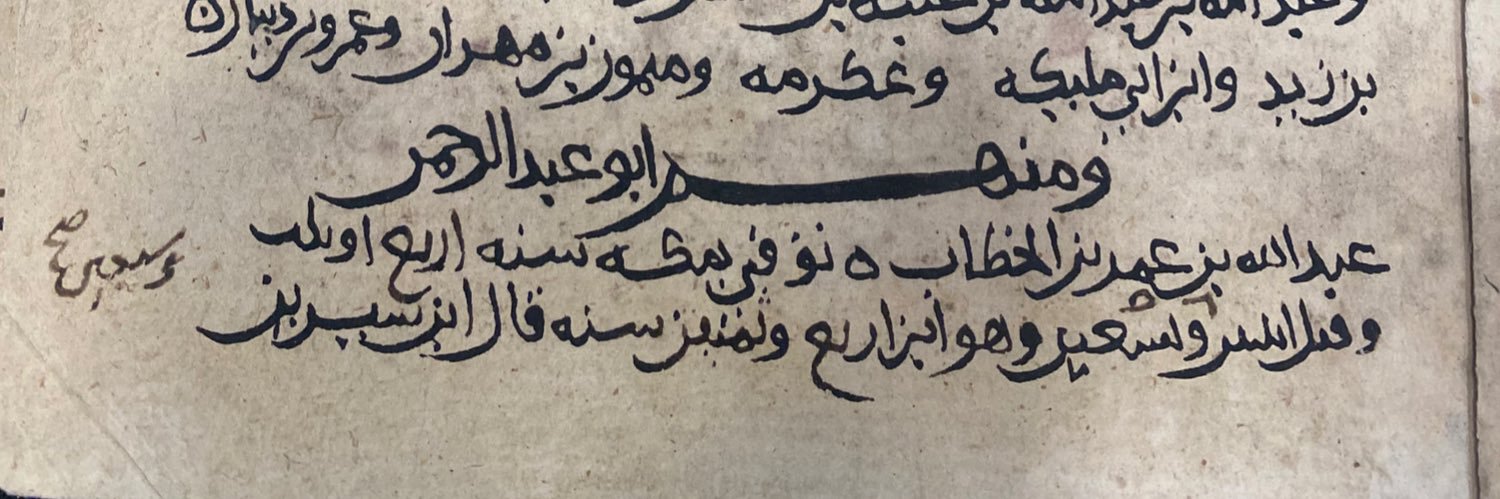 وعبد الله بن عبد الله بن عتبه بن
بن زيد وابن ابي مليكه وعكرمه وميمون بن مهران وعمرو بن دينار ه
ومنهم ابو عبد الرحمن
عبد الله بن عمر بن الخطاب ه توفي بمكه سنه اربع او ثلث
وسبعين صح
وقيل اثنين وسبعين وهو ابن اربع وثمنين سنه قال ابن سيرين